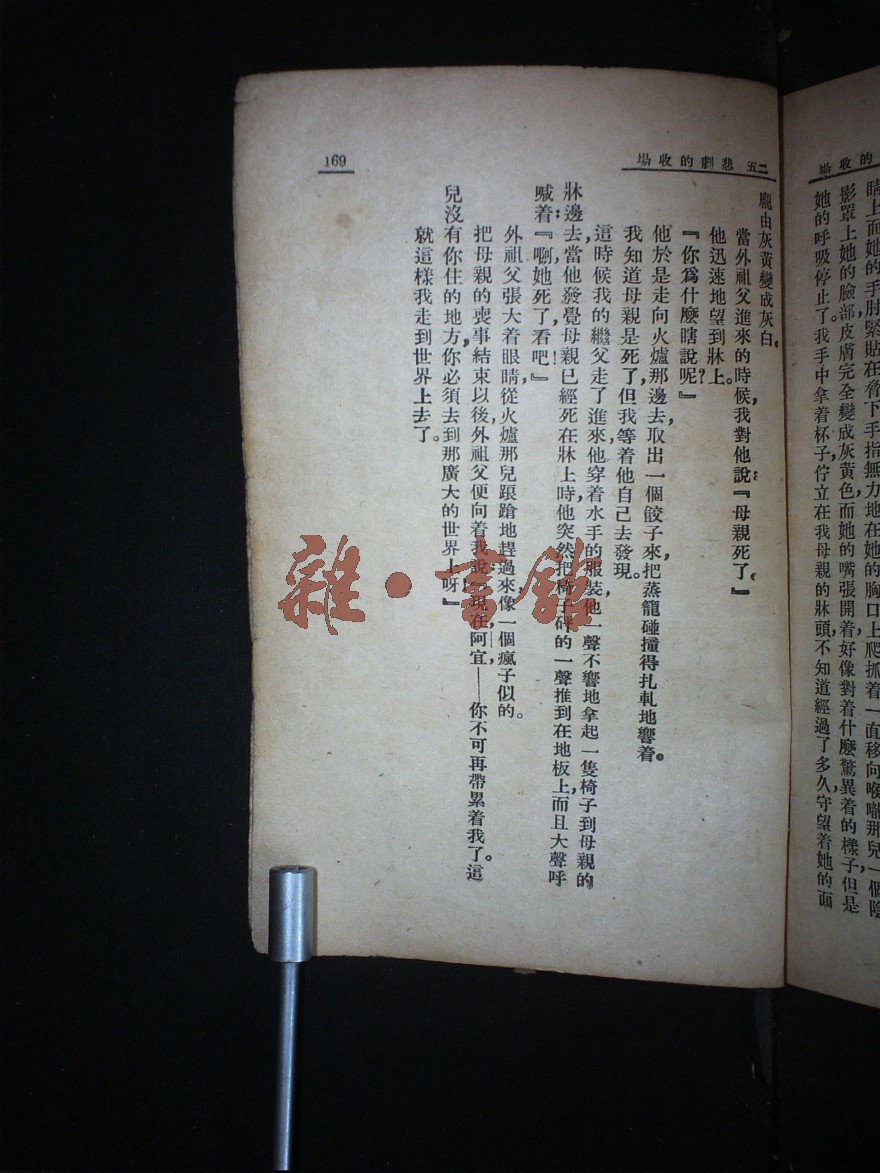 的收場
睛上面她的手肘緊貼在脅下手指無力地在她的胸口上爬抓着一面移向喉嚨那兒一個陰
影罩上她的臉部皮膚完全變成灰黃色而她的嘴張開着好像對着什麼驚異着的樣子但是
她的呼吸停止了。我手中拿着杯子佇立在我母親的牀頭不知道經過了多久守望着她的面
二五 悲劇的收場
169
龐由灰黃變成灰白。
當外祖父進來的時候，我對他說：『母親死了。』
他迅速地望到牀上。
『你爲什麼瞎說呢？』
他於是走向火爐那邊去，取出一個餃子來，把蒸籠碰撞得扎軋地響着。
我知道母親是死了，但我等着他自己去發現。
這時候我的繼父走了進來，他穿着水手的服裝，他一聲不響地拿起一隻椅子到母親的
牀邊去，當他發覺母親已經死在牀上時，他突然把椅子砰的一聲推到在地板上，而且大聲呼
喊着：『啊，她死了，看吧！』
外祖父張大着眼睛，從火爐那兒踉蹌地趕過來，像一個瘋子似的。
把母親的喪事結束以後，外祖父便向着我說：『現在，阿宜——你不可再帶累着我了。這
兒沒有你住的地方，你必須去到那廣大的世界上呀。』
就這樣我走到世界上去了。
雜·書館